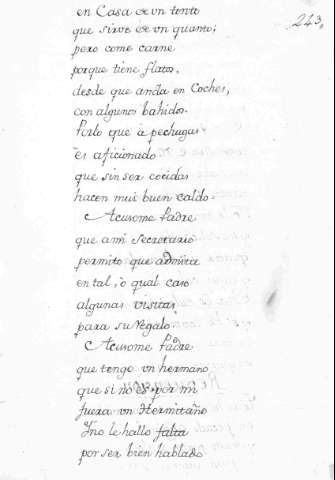 243.
en Casa de un tonto
que sirve de un quanto;
pero come carne
porque tiene flatos,
desde que anda en Coches,
con algunos bahidos.
Porlo que à pechugas
es aficionado
que sin ser cocidas
hacen mui buen caldo.
Acusome Padre
que a mi Secretario
permito que admita
en tal, ò qual caso
algunas visitas
para su regalo.
Acusome Padre
que tengo un hermano
que si no es por mi
fuera un Hermitaño
Yno le hallo falta
por ser bien hablado